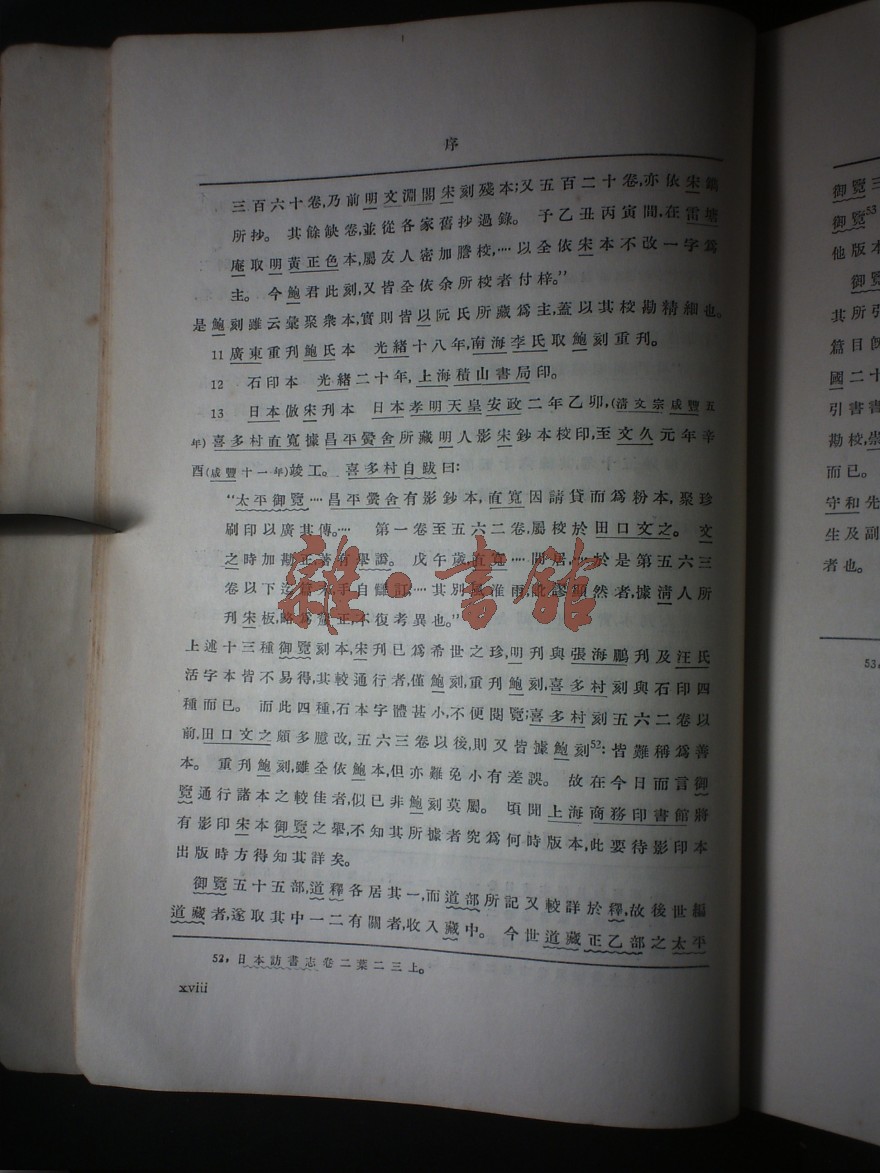 序
三百六十卷,乃前明文淵閣宋刻殘本;又五百二十卷,亦依宋鐫
所抄。 其餘缺卷,並從各家舊抄過錄。 予乙丑丙寅間,在雷塘
庵取明黃正色本,屬友人密加謄校,····以全依宋本不改一字爲
主。 今鮑君此刻,又皆全依余所校者付梓。”
是鮑刻雖云彙聚衆本,實則皆以阮氏所藏爲主,蓋以其校勘精細也。
11 廣東重刋鮑氏本 光緒十八年,南海李氏取鮑刻重刋。
12 石印本 光緒二十年,上海積山書局印。
13 日本倣宋刋本 日本孝明天皇安政二年乙卯,(清文宗咸豐五
年)喜多村直寬據昌平黌舍所藏明人影宋鈔本校印,至文久元年辛
酉(咸豐十一年)竣工。 喜多村自跋曰:
“太平御覽····昌平黌舍有影鈔本,直寬因請貸而爲粉本,聚珍
刷印以廣其傳。···· 第一卷至五六二卷,屬校於田口文之。 文
之時加勘正,著有舉譌。 戊午歲,直寬····閒居,····於是第五六三
卷以下迄 手自讎訂,····其別風淮雨,訛謬顯然者,據淸人所
刊宋板,略爲釐正,不復考異也。”
上述十三種御覽刻本,宋刋已爲希世之珍,明刋與張海鵬刋及汪氏
活字本皆不易得,其較通行者,僅鮑刻,重刋鮑刻,喜多村刻與石印四
種而已。 而此四種,石本字體甚小,不便閱覽;喜多村刻五六二卷以
前,田口文之頗多臆改,五六三卷以後,則又皆據鮑刻52: 皆難稱爲善
本。 重刋鮑刻,雖全依鮑本,但亦難免小有差誤。 故在今日而言御
覽通行諸本之較佳者,似已非鮑刻莫屬。 頃聞上海商務印書館將
有影印宋本御覽之舉,不知其所據者究爲何時版本,此要待影印本
出版時方得知其詳矣。
御覽五十五部,道釋各居其一,而道部所記又較詳於釋,故後世編
道藏者,遂取其中一二有關者,收入藏中。 今世道藏正乙部之太平
52, 日本訪書志卷二葉二三上。
xviii
雜·書館
御覽三
御覽53
他版本
御覽
其所引
篇目旣
國二十
引書書
勘校,崇
而已。
守和先
生及副
者也。
53,